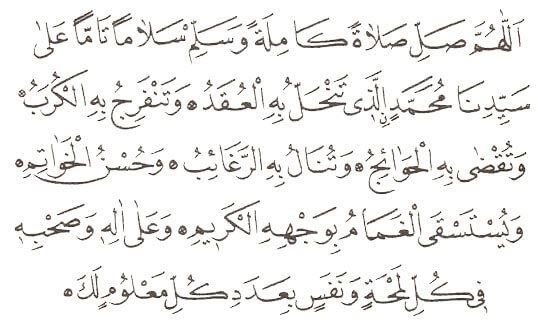 اَللّٰهُمَّ صَلِّ صَلَاةً كَامِلَةً وَسَلِّمْ سَلَامًا تَامًّا عَلٰى
سَيِّدِنَا مُحَمَّدٍ ࣙالَّذِى تَنْحَلُّ بِهِ الْعُقَدُ ۞ وَتَنْفَرِجُ بِهِ الْكُرَبُ ۞
وَتُقْضٰى بِهِ الْحَوَائِجُ ۞ وَتُنَالُ بِهِ الرَّغَائِبُ ۞ وَحُسْنُ الْخَوَاتِمِ ۞
وَيُسْتَسْقَى الْغَمَامُ بِوَجْهِهِ الْكَرِيمِ ۞ وَعَلٰى اٰلِهِ وَصَحْبِهِ
فِى كُلِّ لَمْحَةٍ وَنَفَسٍ بِعَدَدِ كُلِّ مَعْلُومٍ لَكَ ۞